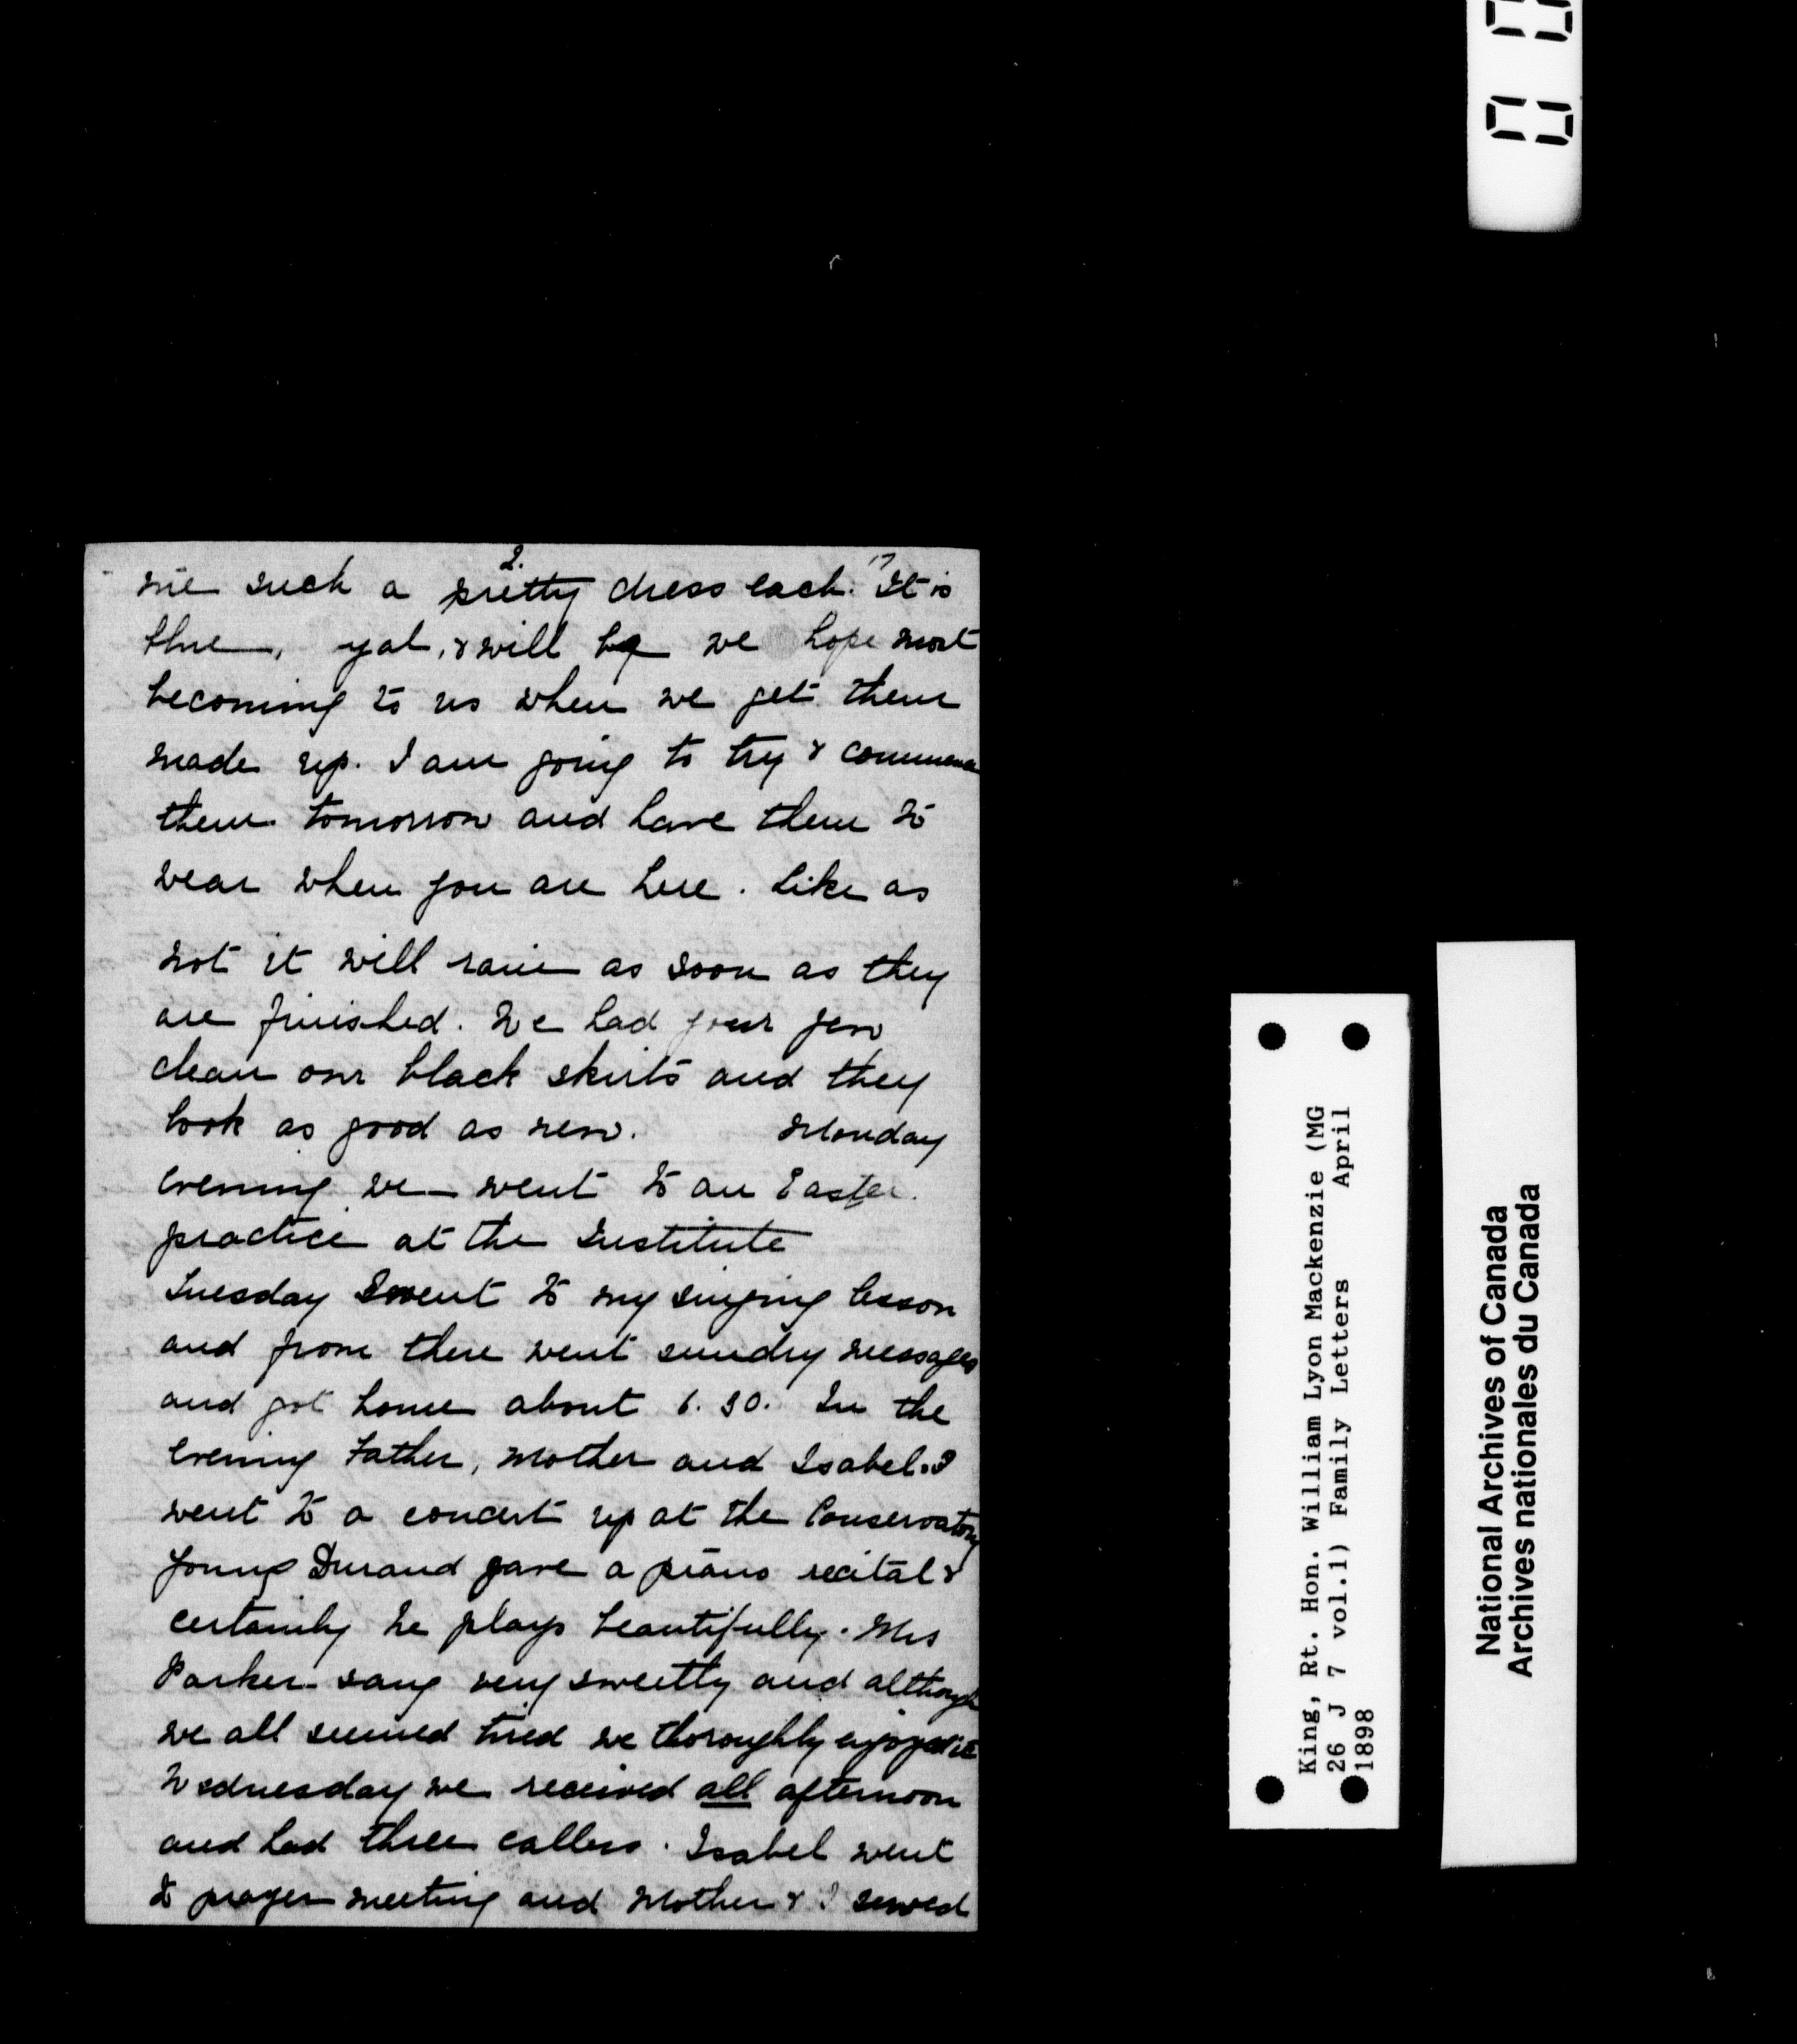 2.
me such a pretty dress each. It is
blue, & will be we hope most
becoming to us when we get them
made up. I am going to try & commence
them tomorrow and have them to
wear when you are here. Like as
not it will rain as soon as they
are finished. We had your
clean our black skirts and they
look as good as new. Monday
evening we went to an Easter
practice at the Institute
Tuesday I went to my singing lesson
and from there went sundry messages
and got home about 6.30. In the
evening Father, Mother and Isabel & I
went to a concert up at the Conservatory
Young Durand gave a piano recital &
certainly he plays beautifully. Mrs
Parker sang very sweetly and although
we all seemed tired we thoroughly enjoyed it
Wednesday we received all afternoon
and had three callers. Isabel went
to prayer meeting and Mother & I sewed
King, Rt. Hon. William Lyon Mackenzie (MG
26 J 7 vol.1) Family Letters April
1898
National Archives of Canada
Archives nationales du Canada